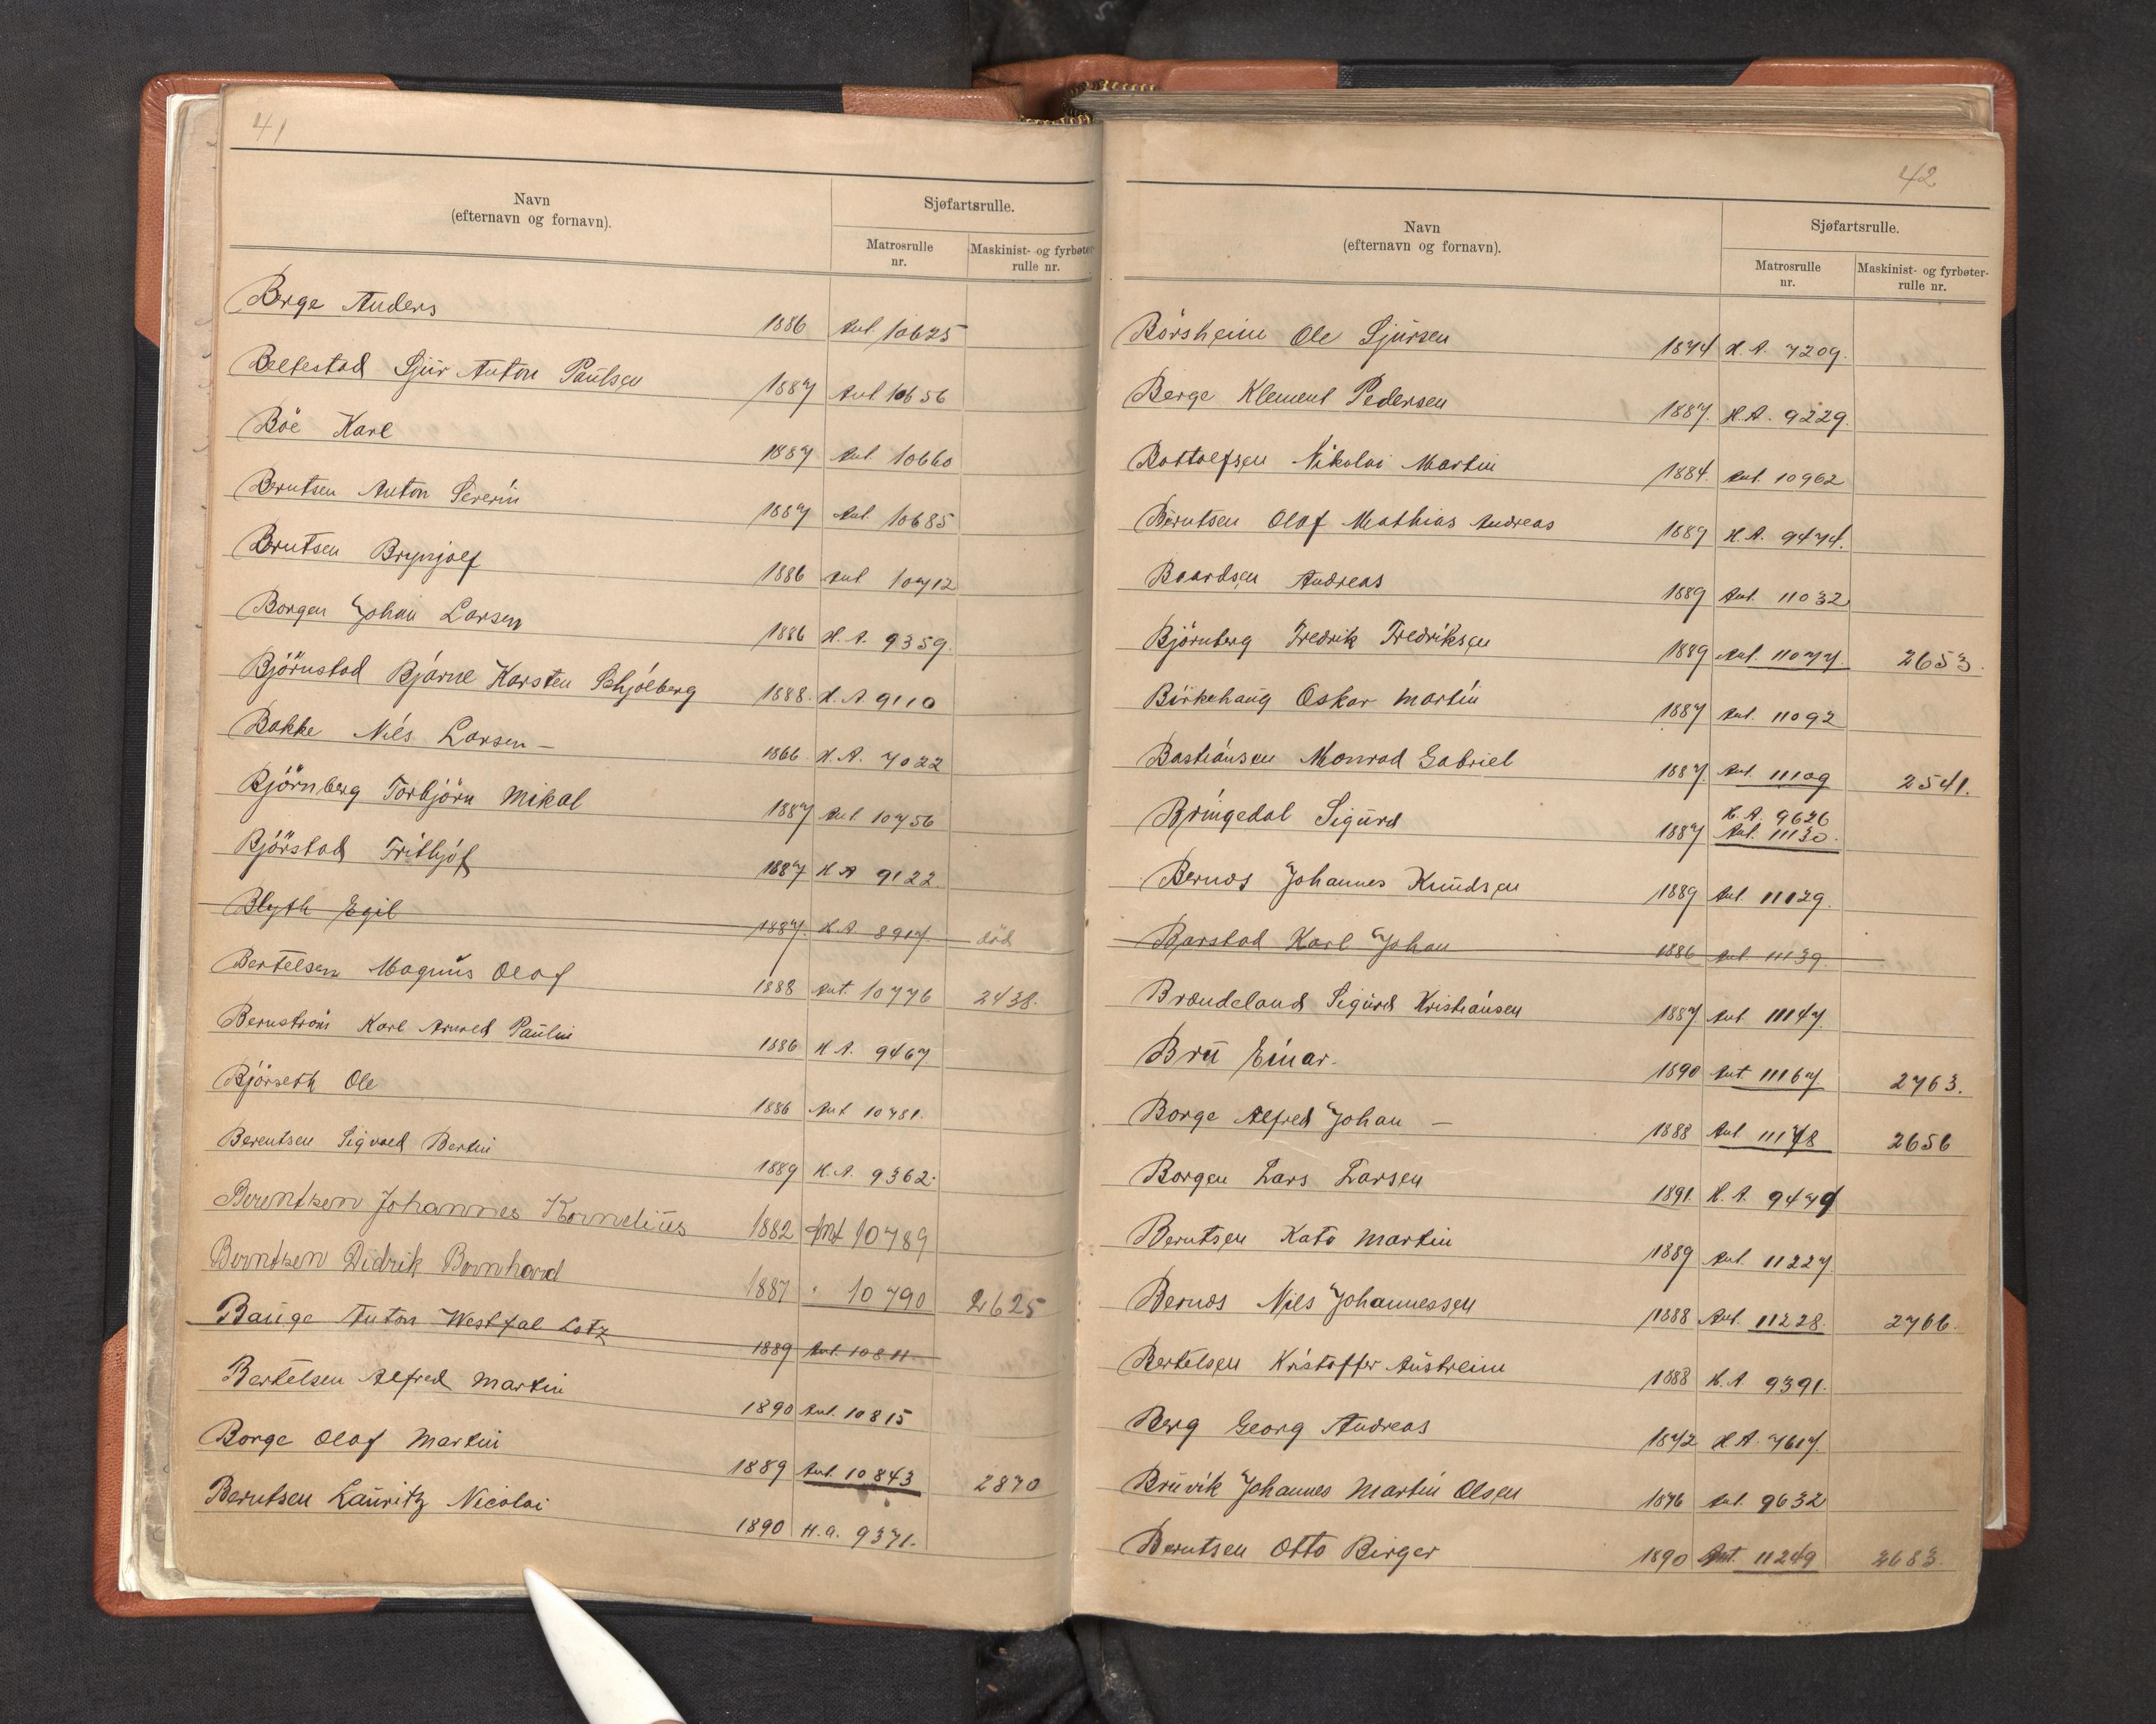 41
Navn
(efternavn og fornavn).
Sjøfartsrulle.
Matrosrulle
nr.
Maskinist- og fyrbøter-
rulle nr.
Berge Anders 1886 Ant. 10625
Sjur Anton Paulsen 1887 Ant 10656
Böe Karl 1887 Ant. 10660
Berntsen Anton Severin 1887 Ant. 10685
Berntsen Brynjolf 1886 Ant 10712
Borgen Johan Larsen 1886 H.A. 9359.
Björnstad Bjarne Karsten Schjölberg 1888. H.A. 9110
Bakke Nils Larsen – 1866 H.A. 7022
Björnberg Torbjörn Mikal 1887 Ant. 10756
Björstad Frithjof 1887 H A 9122
Blyth Egil 1887. H.A. 8917 död
Bertelsen Magnus Olaf 1888 Ant. 10776 2438.
Bernström Karl Arnold Paulin 1886 H A. 9467
Björseth Ole 1886 Ant 10781.
Berentsen Sigvald Bertin 1889 H.A. 9362.
Berentsen Johannes Kornelius 1882 Ant 10789
Berntsen Didrik Bernhard 1887 " 10790 2625
Bauge Anton Westfal Lotz 1889 Ant. 10811
Bertelsen Alfred Martin 1890 Ant. 10815
Borge Olaf Martin 1889 Ant. 10843 2870
Berntsen Lauritz Nicolai 1890 H.A. 9371.
42
Navn
(efternavn og fornavn).
Sjøfartsrulle.
Matrosrulle
nr.
Maskinist- og fyrbøter-
rulle nr.
Börsheim Ole Sjursen 1874 H.A. 7209.
Berge Klement Pedersen 1887. H.A. 9229.
Bottolfsen Nikolai Martin 1884. Ant. 10962
Berntsen Olaf Mathias Andreas 1889 H.A. 9474.
Baardsen Andreas 1889 Ant. 11032
Björnberg Fredrik Fredriksen 1889 Ant. 11077. 2653.
Birkehaug Oskar Martin 1887 Ant. 11092
Bastiansen Monrad Gabriel 1887. Ant. 11109 2541.
H.A. 9626
Bringedal Sigurd 1887 Ant. 11130.
Bernes Johannes Knudsen 1889 Ant. 11129.
Barstad Karl Johan 1886 Ant 11139.
Brandeland Sigurd Kristiansen 1887 Ant. 11147.
Bru Einar. 1890 Ant 11167. 2763.
Borge Alfred Johan – 1888 Ant. 11178 2656
Borgen Lars Larsen 1891. H.A. 9479
Berntsen Kato Martin 1889 Ant. 11227
Bernes Nils Johannessen 1888 Ant. 11228. 2766.
Bertelsen Kristoffer Austreim 1888 H.A. 9391.
Berg Georg Andreas 1872 H A. 7617.
Bruvik Johannes Martin Olsen 1876 Ant. 9632
Berntsen Otto Birger 1890 Ant. 11249 2683.